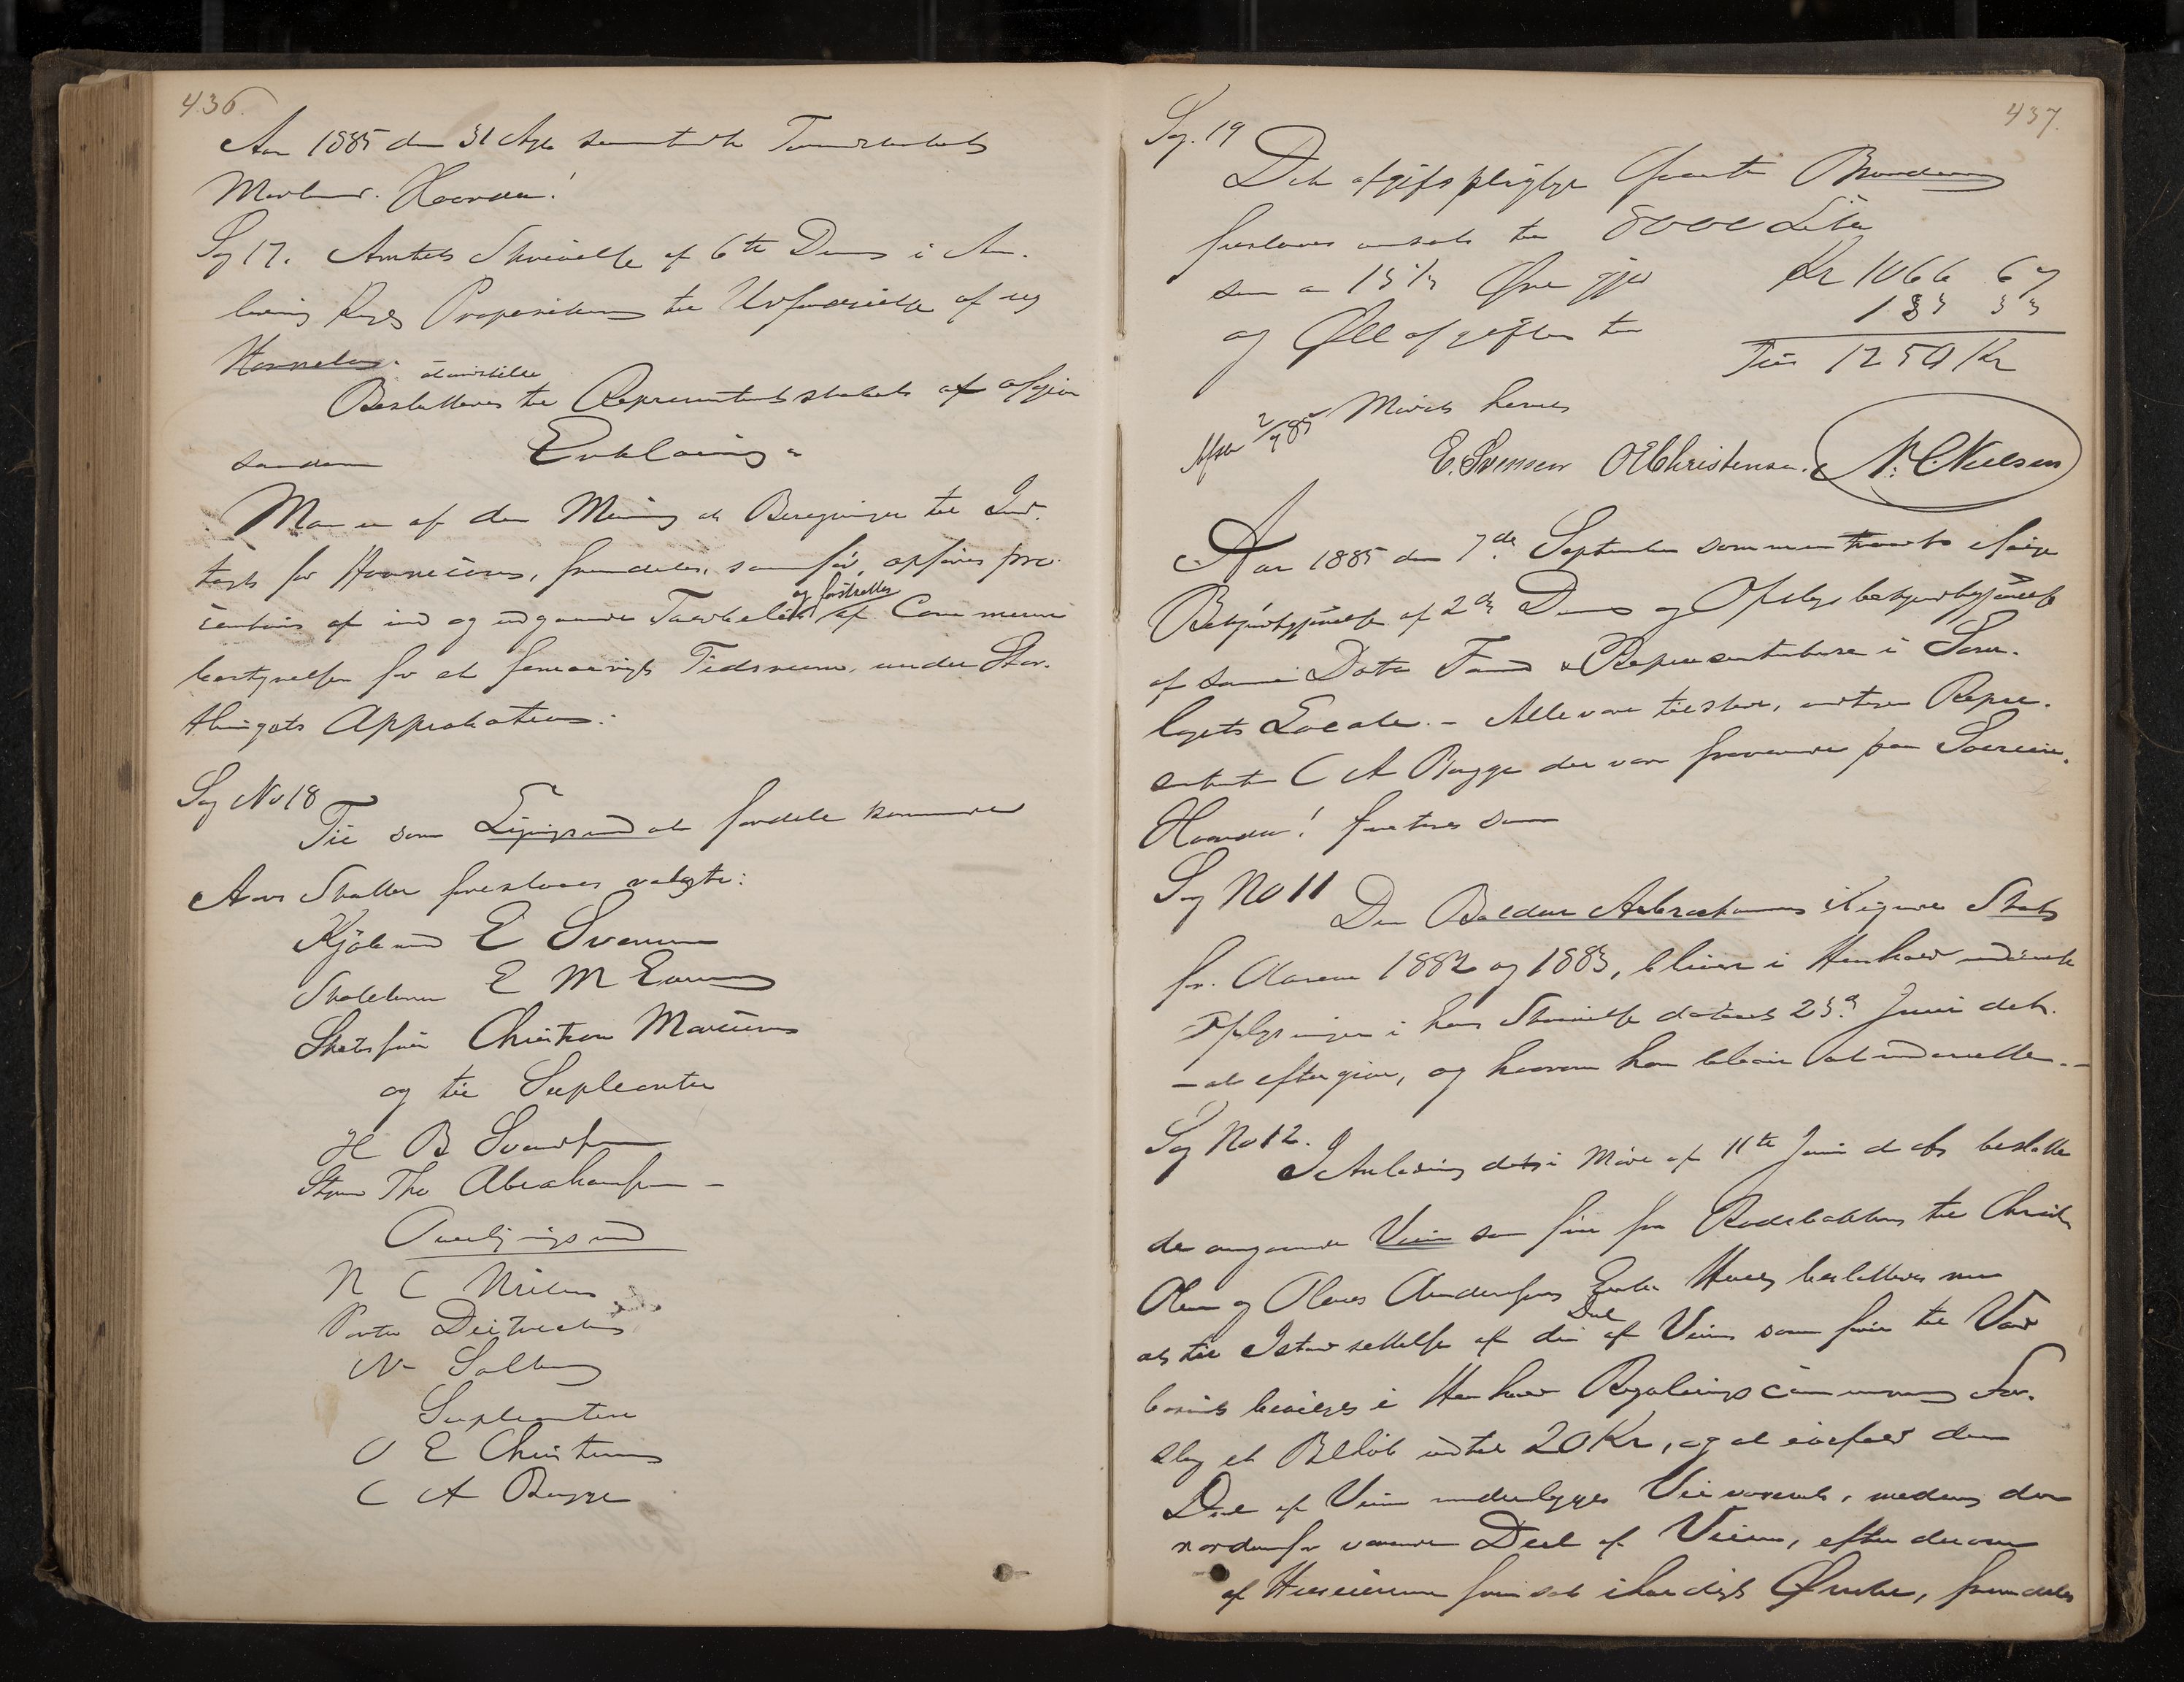 436.
Aar 1885 den 31 Aug samledes Formandskabet
Hvorda!
Sag 17. Amtets Skrivelse af 6te Dennes i An-
ledning Kgl Proposition til Udfærdigelse af ny
Havnelov.
Besluttedes at indstille til Repræsentantskabet at afgive
saadan Erklæring:
Man er af den Mening at Beregningen til Ind-
tægt for Havnecassen, fremdeles, som før, opføres pro-
centvis af ind og udgaaende Toldbeløb og fastsættes af Commune
bestyrelsen for et femaarigt Tidsrum, under Stor-
thingets Approbation.
Sag No 18
Til som Ligningsmænd at fordele kommende
Aars Skatter foresloges valgte:
Kjøbmand E Svensen
Skolelærer E M
Skibsfører Christian
og til Supleanter
H B
Styrm Tho Abrahamsen –
Overligningsmænd
N C Nielsen
N Solberg
Supleanter
O E Christensen
C A Bugge
437.
Sag. 19
Det afgiftspligtige Qvantum Brændeviin
foreslaaes ansat til 8000 Liter
som a 13 1/3 Øre gjør Kr 1066 67
og Øll afgiften til 183 33
Til 1250 Kr
Afsn 2/9 85 Mødet hævet
E. Svensen O E Christensen. N. C. Nielsen
Aar 1885 den 7de September sammentraadte ifølge
Bekjendtgjørelse af 2den Dennes og Opslagsbekjendtgjørelse
af samme Dato Formænd & Repræsentantere i Sam-
lagets Locale. – Alle vare tilstede, undtagen Repræ-
sentant C A Bugge der var fraværende paa Søreise.
Hvorda! foretoges som
Sag No 11 Den Baldur Abrahamsen iligne Skat
for Aarene 1882 og 1883, bliver i Henhold
Oplysninger i hans Skrivelse dateret 23de Juni dets.
– at eftergive, og hvorom han bliver at underrette. –
Sag No 12.
I Anledning det i Møde af 11te Juni d A besluttede
angaaende Veien som fører fra til Christen
Olsen og Olaves Andersens Enke Huus besluttedes nu
at til Istandsættelse af den Deel af Veien som fører til Vand
brønd bevilges i Henhold Reguleringscommissionens For-
slag et Beløb indtil 20 Kr, og at den
Deel af Veien underlægges Veivæsenet, medens den
nordenfor værende Deel af Veien, efter derom
af Huseierne fremsat Ønske, fremdeles